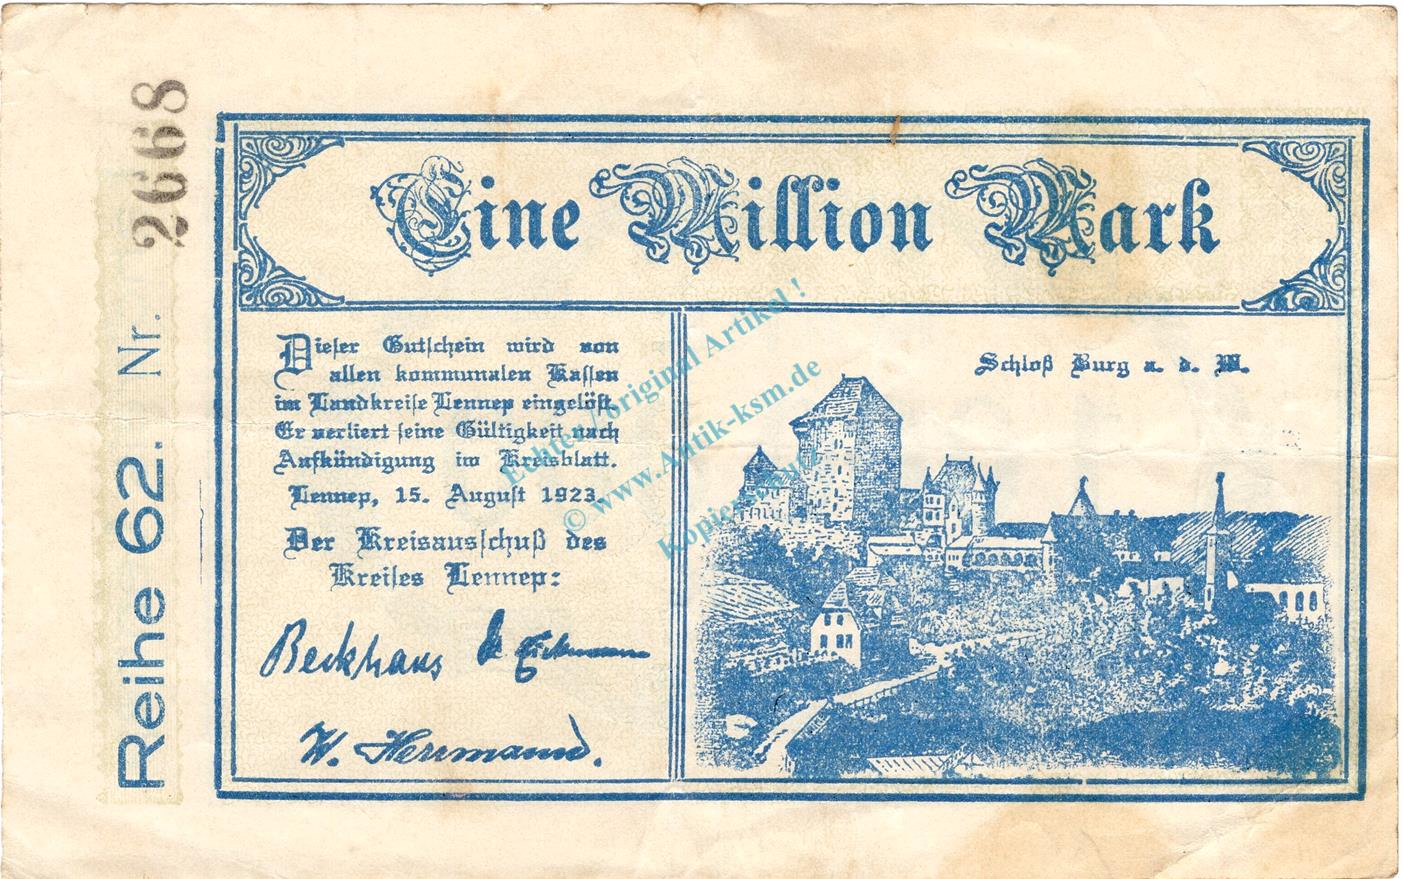 Reihe 62. Nr. 2668
Eine Million Mark
Dieser Gutschein wird von
allen kommunalen Kassen
im Landkreise Lennep eingelöst.
Er verliert seine Gültigkeit nach
Aufkündigung im Kreisblatt.
Lennep, 15. August 1923.
Der Kreisausschuß des
Kreises Lennep:
Beckhaus
W. Herrmann.
Schloß Burg a. d. W.
Echter / original Artikel !
© www.Antik-ksm.de
Kopierschutz